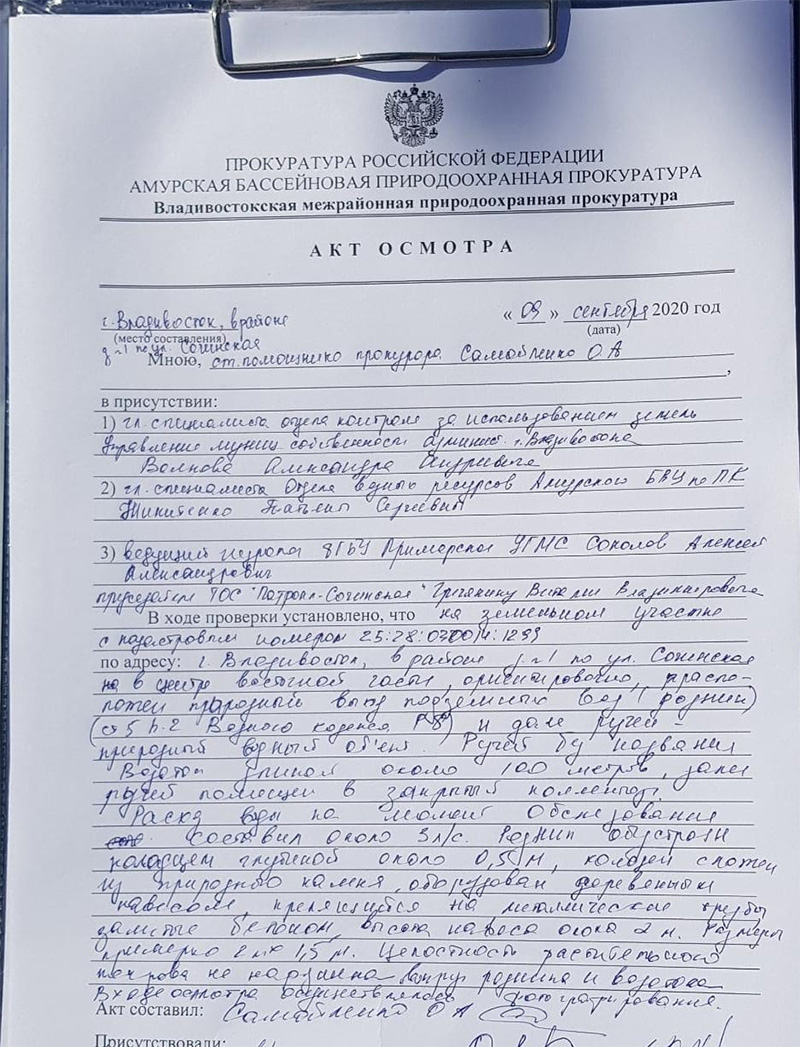 ПРОКУРАТУРА РОССИЙСКОЙ ФЕДЕРАЦИИ
АМУРСКАЯ БАССЕЙНОВАЯ ПРИРОДООХРАННАЯ ПРОКУРАТУРА
Владивостокская межрайонная природоохранная прокуратура
АКТ ОСМОТРА
г. Владивосток, в районе « 09 » сентября 2020 год
(место составления) (дата)
д-1 по ул. Сочинская
Мною, ст. помощнико прокурора Самойленко О А
,
в присутствии:
1) гл. специалиста отдела контроля за использованием земель
Управление муниц. собственности админист. г. Владивостока
Волкова Александра Андреевича
2) гл. специалиста Отдела водных ресурсов Амурского БВУ по ПК
Татьяны
3) ведущий гидролог ФГБУ Приморское УГМС Соколов Алексей
Александрович
ТОС "Патрокл-Сочинская" Владимировича
В ходе проверки установлено, что на земельном участке
с кадастровым номером
по адресу: г. Владивосток, в районе д-1 по ул. Сочинская
в центре восточной части, ориентировочно, распо-
ложен природный выход подземных вод (родник)
(ст 5 п. 2 Водного кодекса РФ) и далее ручей
природный водный объект. Ручей без названия
Водоток длиной около 100 метров, далее
ручей помещен в закрытый коллектор.
Расход воды на момент обследования
составил около 3 л/с. Родник обустроен
колодцем глубиной около 0,5 м, колодец сложен
из природного камня, оборудован деревянным
навесом, крепящийся на металлические трубы
залитые бетоном, высота навеса около 2 м. Размеры
примерно 2 м х 1,5 м. Целостность растительного
покрова не нарушена вокруг родника и водотока
В ходе осмотра осуществлялось фотографирование.
Акт составил: Самойленко О А
Присутствовали: